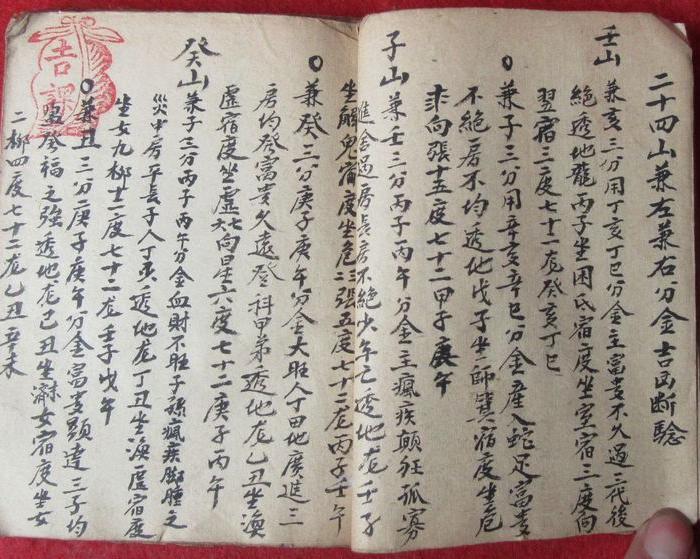 二十四山兼左兼右分金吉凶断驗
壬山兼亥三分用丁亥丁巳分金主富贵不久過三代後
絶透地龍丙子坐困氐宿度坐室宿三度向
翌宿三度七十一龙癸亥丁巳
兼子三分用辛亥辛巳分金產入蛇足富贵
不絶房不均透地戊子坐師箕宿度坐危
求向張十五度七十二甲子庚午
子山兼壬三分丙子丙午分金主瘋疾顛狂孤寡
進舍過房長房不絶少年亡透地龙壬子
坐解鬼宿度坐危二張五度七十二龙丙子壬午
兼癸三分庚子庚午分金大旺人丁田地廣進三
房均發富贵久遠登科甲弟透地龙乙丑坐渙
虚宿度坐虚七向星六度七十二庚子丙午
癸山兼子三分丙子丙午分金血財不旺子孫瘋疾脚腫之
災中房平長子人丁夷透地龙丁丑坐渙虚宿度
坐女九柳十二度七十二龙壬子戊午
兼丑三分庚子庚午分金富贵顕達三子均
發福之強透地龙己丑坐女宿度坐女
二柳四度七十二龙乙丑辛未
吉課